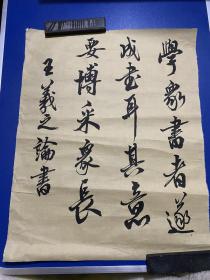 學家書者遂
成書耳其意
要博采衆長
王羲之論書